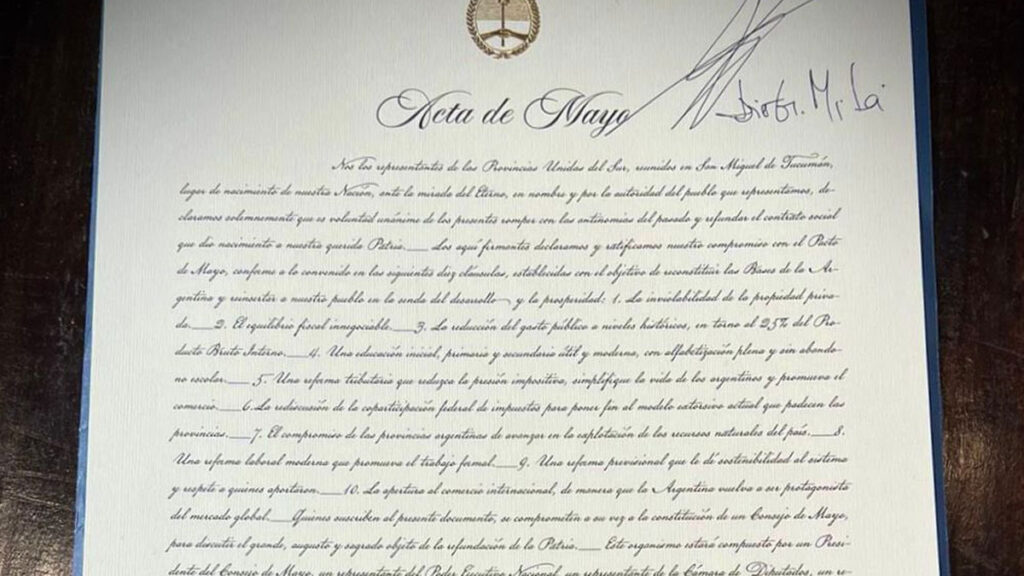 Acta de Mayo
Nos los representantes de las Provincias Unidas del Sur, reunidos en San Miguel de Tucumán,
lugar de nacimiento de nuestra Nación, ante la mirada del Eterno, en nombre y por la autoridad del pueblo que representamos, de-
claramos solemnemente que es voluntad unánime de los presentes romper con las antinomias del pasado y refundar el contrato social
que dio nacimiento a nuestra querida Patria.___ Los aquí firmantes declaramos y ratificamos nuestro compromiso con el Pacto
de Mayo, conforme a lo convenido en las siguientes diez cláusulas, establecidas con el objetivo de reconstituir las Bases de la Ar-
gentina y reinsertar a nuestro pueblo en la senda del desarrollo y la prosperidad: 1. La inviolabilidad de la propiedad priva-
da.___2. El equilibrio fiscal innegociable.___3. La reducción del gasto público a niveles históricos, en torno al 25% del Pro-
ducto Bruto Interno.___4. Una educación inicial, primaria y secundaria útil y moderna, con alfabetización plena y sin abando-
no escolar.___5. Una reforma tributaria que reduzca la presión impositiva, simplifique la vida de los argentinos y promueva el
comercio.___6. La rediscusión de la coparticipación federal de impuestos para poner fin al modelo extorsivo actual que padecen las
provincias.___7. El compromiso de las provincias argentinas de avanzar en la explotación de los recursos naturales del país.___8.
Una reforma laboral moderna que promueva el trabajo formal.___9. Una reforma previsional que le dé sostenibilidad al sistema
y respete a quienes aportaron.___10. La apertura al comercio internacional, de manera que la Argentina vuelva a ser protagonista
del mercado global.___Quienes suscriben al presente documento, se comprometen a su vez a la constitución de un Consejo de Mayo,
para discutir el grande, augusto y sagrado objeto de la refundación de la Patria.___ Este organismo estará compuesto por un Presi-
dente del Consejo de Mayo, un representante del Poder Ejecutivo Nacional, un representante de la Cámara de Diputados, un re-